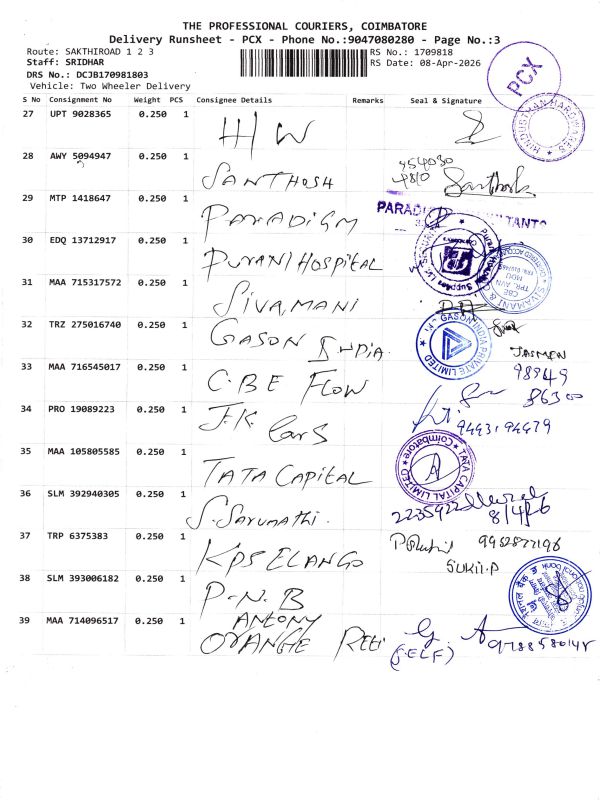 THE PROFESSIONAL COURIERS, COIMBATORE
Delivery Runsheet - PCX - Phone No.:9047080280 - Page No.:3
Route: SAKTHIROAD 1 2 3 RS No.: 1709818
Staff: SRIDHAR RS Date: 08-Apr-2026
DRS No.: DCJB170981803
Vehicle: Two Wheeler Delivery
PCX
S No Consignment No Weight PCS Consignee Details Remarks Seal & Signature
27 UPT 9028365 0.250 1 H/W
HINDUSTHAN HARDWARES
28 AWY 5094947 0.250 1 SANTHOSH 954030 4810 Santhosh
29 MTP 1418647 0.250 1 PARADIGM
30 EDQ 13712917 0.250 1 PURANI HOSPITAL
31 MAA 715317572 0.250 1 SIVAMANI
32 TRZ 275016740 0.250 1 GASON INDIA
GASON INDIA PRIVATE LIMITED
JASMEN
33 MAA 716545017 0.250 1 C.B.E FLOW 98949 86300
34 PRO 19089223 0.250 1 J.K. Cars 9493194479
35 MAA 105805585 0.250 1 TATA CAPITAL
TATA CAPITAL LIMITED Coimbatore
36 SLM 392940305 0.250 1 S. Sarumathi. 8/4/26
37 TRP 6375383 0.250 1 KPS ELANGO 9952877196
38 SLM 393006182 0.250 1 P.N.B
39 MAA 714096517 0.250 1 ANTONY
ORANGE (SELF)